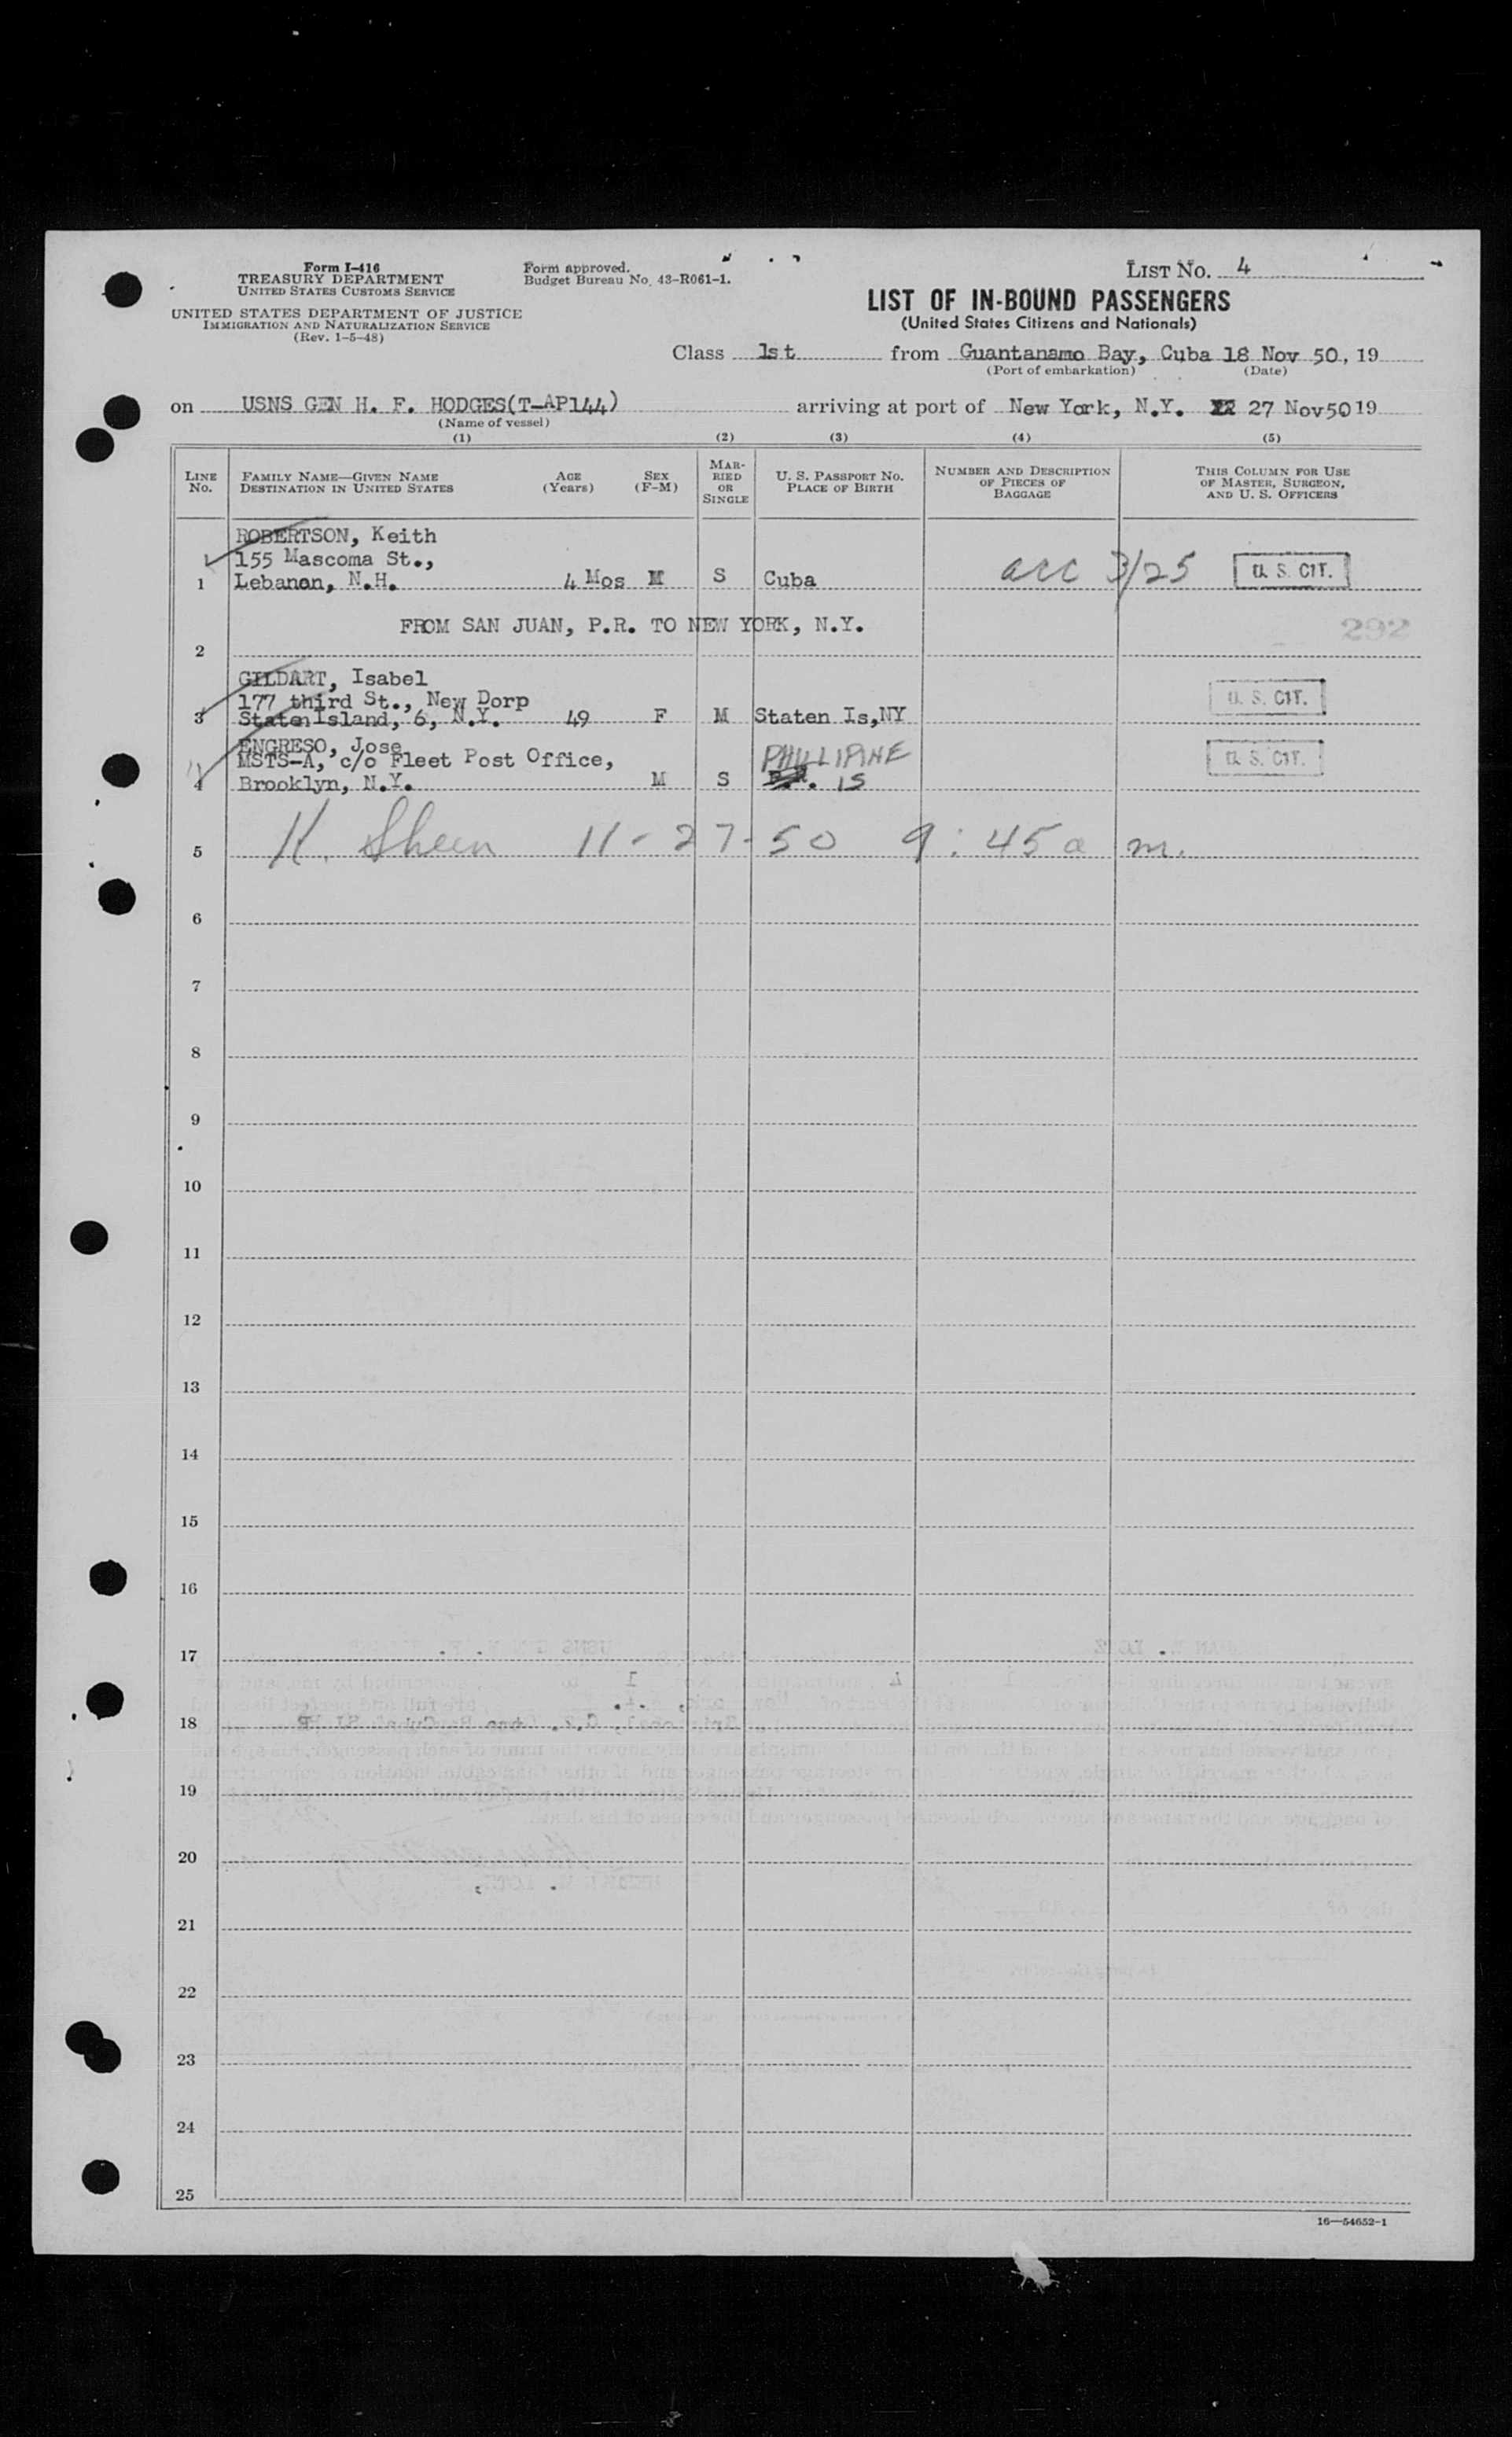 Form I-416
TREASURY DEPARTMENT
UNITED STATES CUSTOMS SERVICE
UNITED STATES DEPARTMENT OF JUSTICE
IMMIGRATION AND NATURALIZATION SERVICE
(Rev. 1-5-48)
Form approved.
Budget Bureau No. 43-R061-1.
LIST No. 4
LIST OF IN-BOUND PASSENGERS
(United States Citizens and Nationals)
Class 1st from Guantanamo Bay, Cuba 18 Nov 50, 19
(Port of embarkation) (Date)
on USNS GEN H. F. HODGES(T-AP144) arriving at port of New York, N.Y. 27 Nov50 19
(Name of vessel)
(1) (2) (3) (4) (5)
LINE No.
FAMILY NAME—GIVEN NAME
DESTINATION IN UNITED STATES
AGE (Years)
SEX (F-M)
MARRIED OR SINGLE
U. S. PASSPORT No.
PLACE OF BIRTH
NUMBER AND DESCRIPTION OF PIECES OF BAGGAGE
THIS COLUMN FOR USE OF MASTER, SURGEON, AND U. S. OFFICERS
ROBERTSON, Keith
155 Mascoma St.,
1 Lebanon, N.H. 4 Mos M S Cuba acc 3/25 U. S. CIT.
FROM SAN JUAN, P.R. TO NEW YORK, N.Y. 292
2
GILDART, Isabel
177 third St., New Dorp
3 Staten Island, 6, N.Y. 49 F M Staten Is,NY U. S. CIT.
ENGRESO, Jose
MSTS-A, c/o Fleet Post Office, PHILLIPINE
4 Brooklyn, N.Y. M S IS U. S. CIT.
5 K. Sheen 11-27-50 9:45 a m.
6
7
8
9
10
11
12
13
14
15
16
17
18
19
20
21
22
23
24
25
16—54652-1